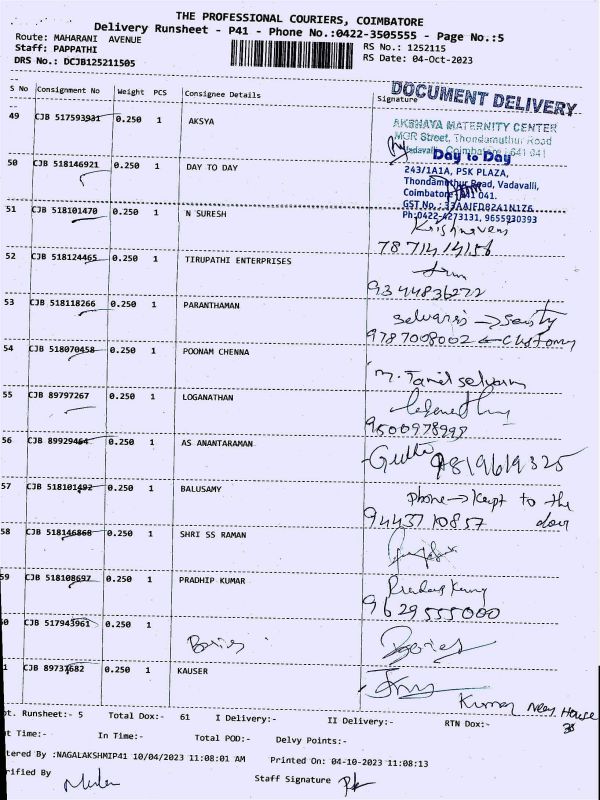 THE PROFESSIONAL COURIERS, COIMBATORE
Delivery Runsheet - P41 - Phone No.:0422-3505555 - Page No.:5
Route: MAHARANI AVENUE
RS No.: 1252115
Staff: PAPPATHI
RS Date: 04-Oct-2023
DRS No.: DCJB125211505
S No Consignment No Weight PCS Consignee Details Signature
DOCUMENT DELIVERY
49 CJB 517593931 0.250 1 AKSYA
AKSHAYA MATERNITY CENTER
MGR Street, Thondamuthur Road
Vadavalli, Coimbatore - 641 041
50 CJB 518146921 0.250 1 DAY TO DAY
Day to Day
243/1A1A, PSK PLAZA,
Thondamuthur Road, Vadavalli,
Coimbatore 641 041.
GST No.: 33AAJFD8241N1Z6
Ph:0422-4273131, 9655930393
51 CJB 518101470 0.250 1 N SURESH
Krishnaveni
52 CJB 518124465 0.250 1 TIRUPATHI ENTERPRISES
9344836272
53 CJB 518118266 0.250 1 PARANTHAMAN
9787008002
54 CJB 518070458 0.250 1 POONAM CHENNA
M. Tamil selvam
55 CJB 89797267 0.250 1 LOGANATHAN
9500978998
56 CJB 89929464 0.250 1 AS ANANTARAMAN
9819619325
57 CJB 518101492 0.250 1 BALUSAMY
phone → kept to the door
9443710857
58 CJB 518146868 0.250 1 SHRI SS RAMAN
59 CJB 518108697 0.250 1 PRADHIP KUMAR
9629555000
0 CJB 517943961 0.250 1
1 CJB 89731682 0.250 1 KAUSER
Kumar Near House
ot. Runsheet:- 5 Total Dox:- 61 I Delivery:- II Delivery:- RTN Dox:-
t Time:- In Time:- Total POD:- Delvy Points:-
tered By :NAGALAKSHMIP41 10/04/2023 11:08:01 AM Printed On: 04-10-2023 11:08:13
rified By Staff Signature